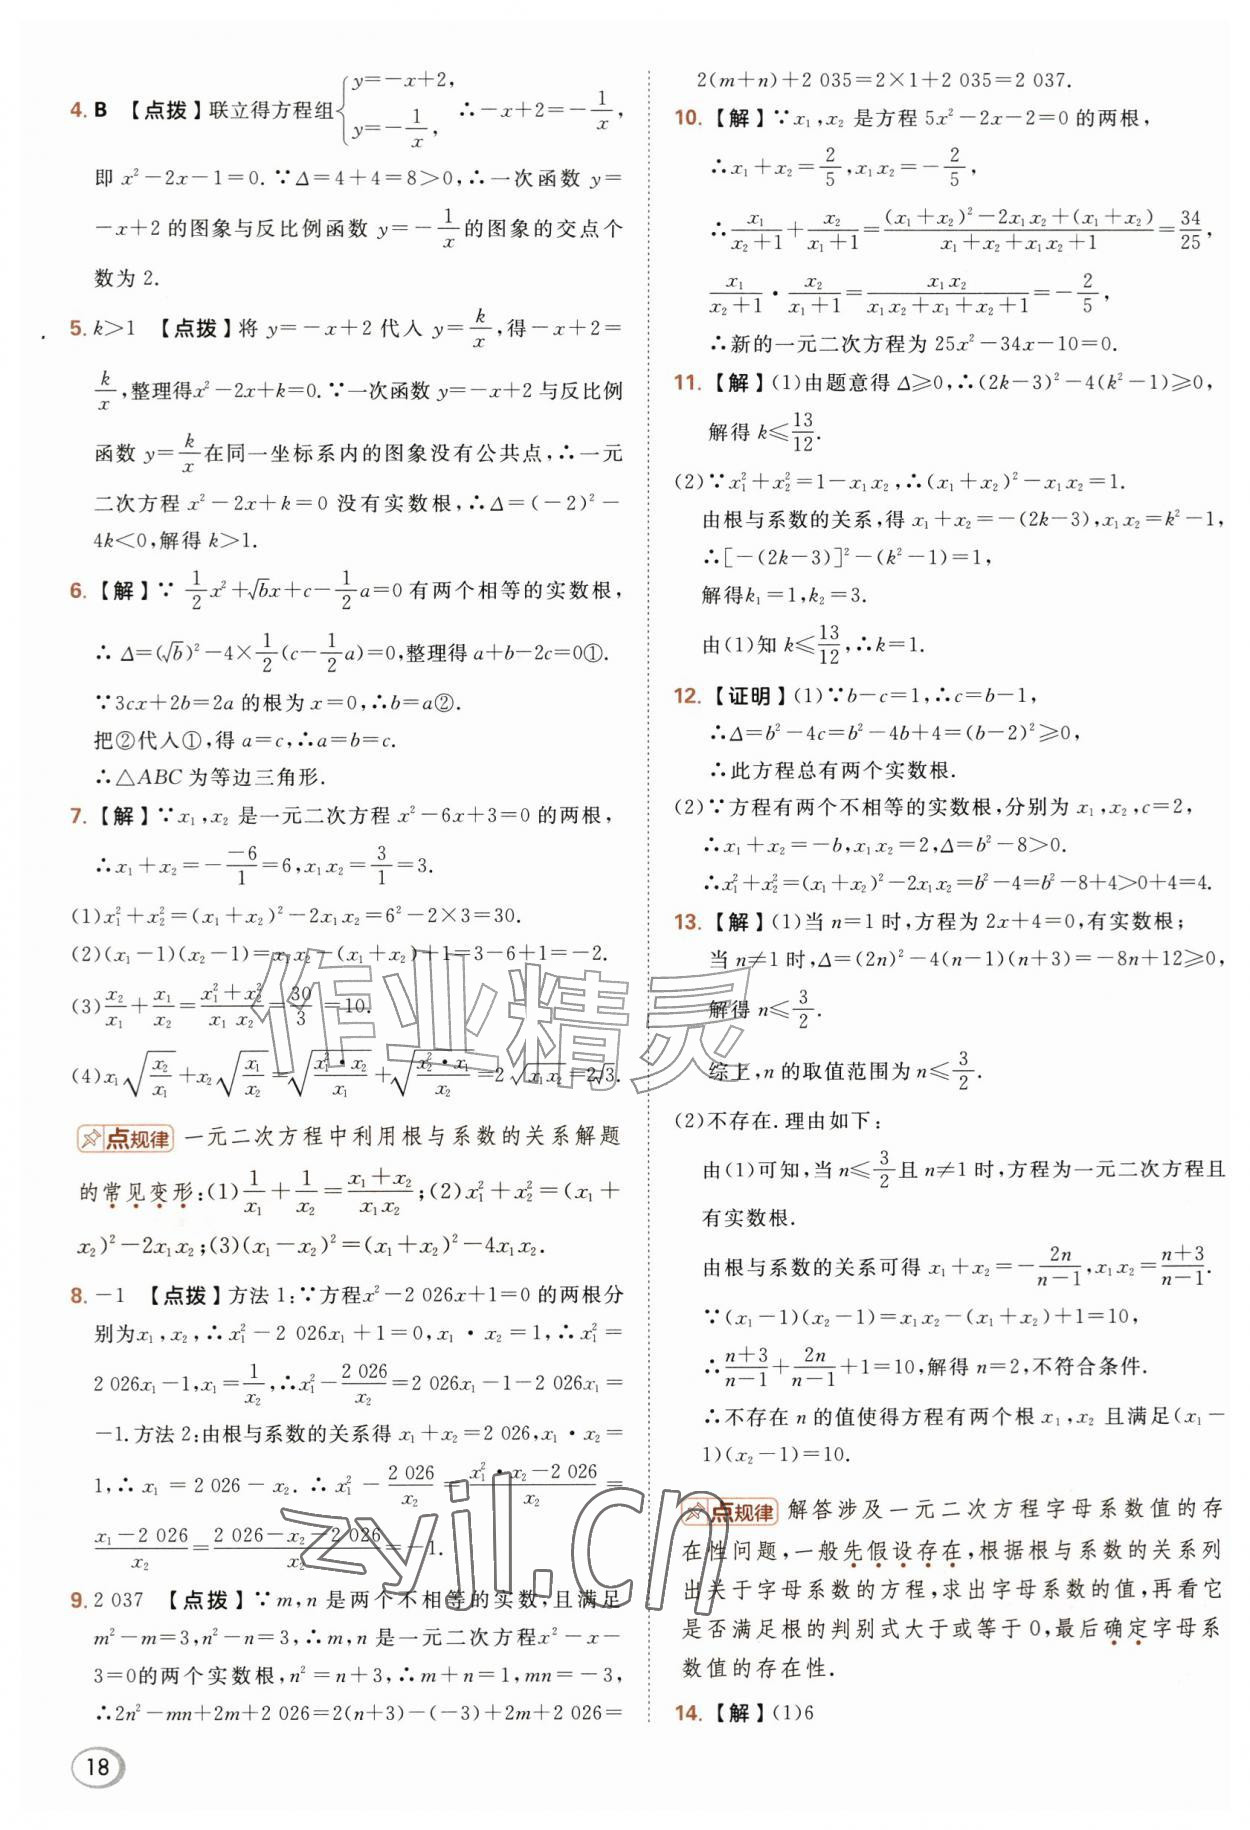 4. B 【点拨】联立得方程组{y=-x+2, y=-1/x, ∴-x+2=-1/x,
即 x²-2x-1=0. ∵Δ=4+4=8>0,∴一次函数 y=
-x+2 的图象与反比例函数 y=-1/x 的图象的交点个
数为 2.
5. k>1 【点拨】将 y=-x+2 代入 y=k/x,得-x+2=
k/x,整理得x²-2x+k=0.∵一次函数 y=-x+2与反比例
函数 y=k/x 在同一坐标系内的图象没有公共点,∴一元
二次方程 x²-2x+k=0 没有实数根,∴Δ=(-2)²-
4k<0,解得 k>1.
6. 【解】∵ 1/2x²+√bx+c-1/2a=0 有两个相等的实数根,
∴ Δ=(√b)²-4×1/2(c-1/2a)=0,整理得 a+b-2c=0①.
∵3cx+2b=2a 的根为 x=0,∴b=a②.
把②代入①,得 a=c,∴a=b=c.
∴△ABC 为等边三角形.
7. 【解】∵x₁,x₂ 是一元二次方程 x²-6x+3=0 的两根,
∴x₁+x₂=-(-6)/1=6,x₁x₂=3/1=3.
(1)x₁²+x₂²=(x₁+x₂)²-2x₁x₂=6²-2×3=30.
(2)(x₁-1)(x₂-1)=x₁x₂-(x₁+x₂)+1=3-6+1=-2.
(3)x₂/x₁+x₁/x₂=(x₁²+x₂²)/(x₁x₂)=30/3=10.
(4)x₁√(x₂/x₁)+x₂√(x₁/x₂)=√(x₁²·x₂/x₁)+√(x₂²·x₁/x₂)=2√(x₁x₂)=2√3.
点规律 一元二次方程中利用根与系数的关系解题
的常见变形:(1)1/x₁+1/x₂=(x₁+x₂)/(x₁x₂);(2)x₁²+x₂²=(x₁+
x₂)²-2x₁x₂;(3)(x₁-x₂)²=(x₁+x₂)²-4x₁x₂.
8. -1 【点拨】方法 1:∵方程x²-2 026x+1=0 的两根分
别为x₁,x₂,∴x₁²-2 026x₁+1=0,x₁·x₂=1,∴x₁²=
2 026x₁-1,x₁=1/x₂,∴x₁²-2 026/x₂=2 026x₁-1-2 026x₁=
-1.方法 2:由根与系数的关系得 x₁+x₂=2 026,x₁·x₂=
1,∴x₁=2 026-x₂.∴x₁²-2 026/x₂=(x₁²·x₂-2 026)/x₂=
(x₁-2 026)/x₂=(2 026-x₂-2 026)/x₂=-1.
9. 2 037 【点拨】∵m,n 是两个不相等的实数,且满足
m²-m=3,n²-n=3,∴m,n 是一元二次方程x²-x-
3=0的两个实数根,n²=n+3,∴m+n=1,mn=-3,
∴2n²-mn+2m+2 026=2(n+3)-(-3)+2m+2 026=
18
2(m+n)+2 035=2×1+2 035=2 037.
10. 【解】∵x₁,x₂ 是方程 5x²-2x-2=0 的两根,
∴x₁+x₂=2/5,x₁x₂=-2/5,
∴x₁/(x₂+1)+x₂/(x₁+1)=((x₁+x₂)²-2x₁x₂+(x₁+x₂))/(x₁+x₂+x₁x₂+1)=34/25,
x₁/(x₂+1)·x₂/(x₁+1)=x₁x₂/(x₁x₂+x₁+x₂+1)=-2/5,
∴新的一元二次方程为 25x²-34x-10=0.
11. 【解】(1)由题意得 Δ≥0,∴(2k-3)²-4(k²-1)≥0,
解得 k≤13/12.
(2)∵x₁²+x₂²=1-x₁x₂,∴(x₁+x₂)²-x₁x₂=1.
由根与系数的关系,得 x₁+x₂=-(2k-3),x₁x₂=k²-1,
∴[-(2k-3)]²-(k²-1)=1,
解得k₁=1,k₂=3.
由(1)知 k≤13/12,∴k=1.
12. 【证明】(1)∵b-c=1,∴c=b-1,
∴Δ=b²-4c=b²-4b+4=(b-2)²≥0,
∴此方程总有两个实数根.
(2)∵方程有两个不相等的实数根,分别为 x₁,x₂,c=2,
∴x₁+x₂=-b,x₁x₂=2,Δ=b²-8>0.
∴x₁²+x₂²=(x₁+x₂)²-2x₁x₂=b²-4=b²-8+4>0+4=4.
13. 【解】(1)当 n=1 时,方程为 2x+4=0,有实数根;
当 n≠1 时,Δ=(2n)²-4(n-1)(n+3)=-8n+12≥0,
解得 n≤3/2.
综上,n 的取值范围为 n≤3/2.
(2)不存在. 理由如下:
由(1)可知,当 n≤3/2 且 n≠1 时,方程为一元二次方程且
有实数根.
由根与系数的关系可得 x₁+x₂=-2n/(n-1),x₁x₂=(n+3)/(n-1).
∵(x₁-1)(x₂-1)=x₁x₂-(x₁+x₂)+1=10,
∴(n+3)/(n-1)+2n/(n-1)+1=10,解得 n=2,不符合条件.
∴不存在 n 的值使得方程有两个根 x₁,x₂ 且满足(x₁-
1)(x₂-1)=10.
点规律 解答涉及一元二次方程字母系数值的存
在性问题,一般先假设存在,根据根与系数的关系列
出关于字母系数的方程,求出字母系数的值,再看它
是否满足根的判别式大于或等于 0,最后确定字母系
数值的存在性.
14. 【解】(1)6
作业精灵
zyjl.cn